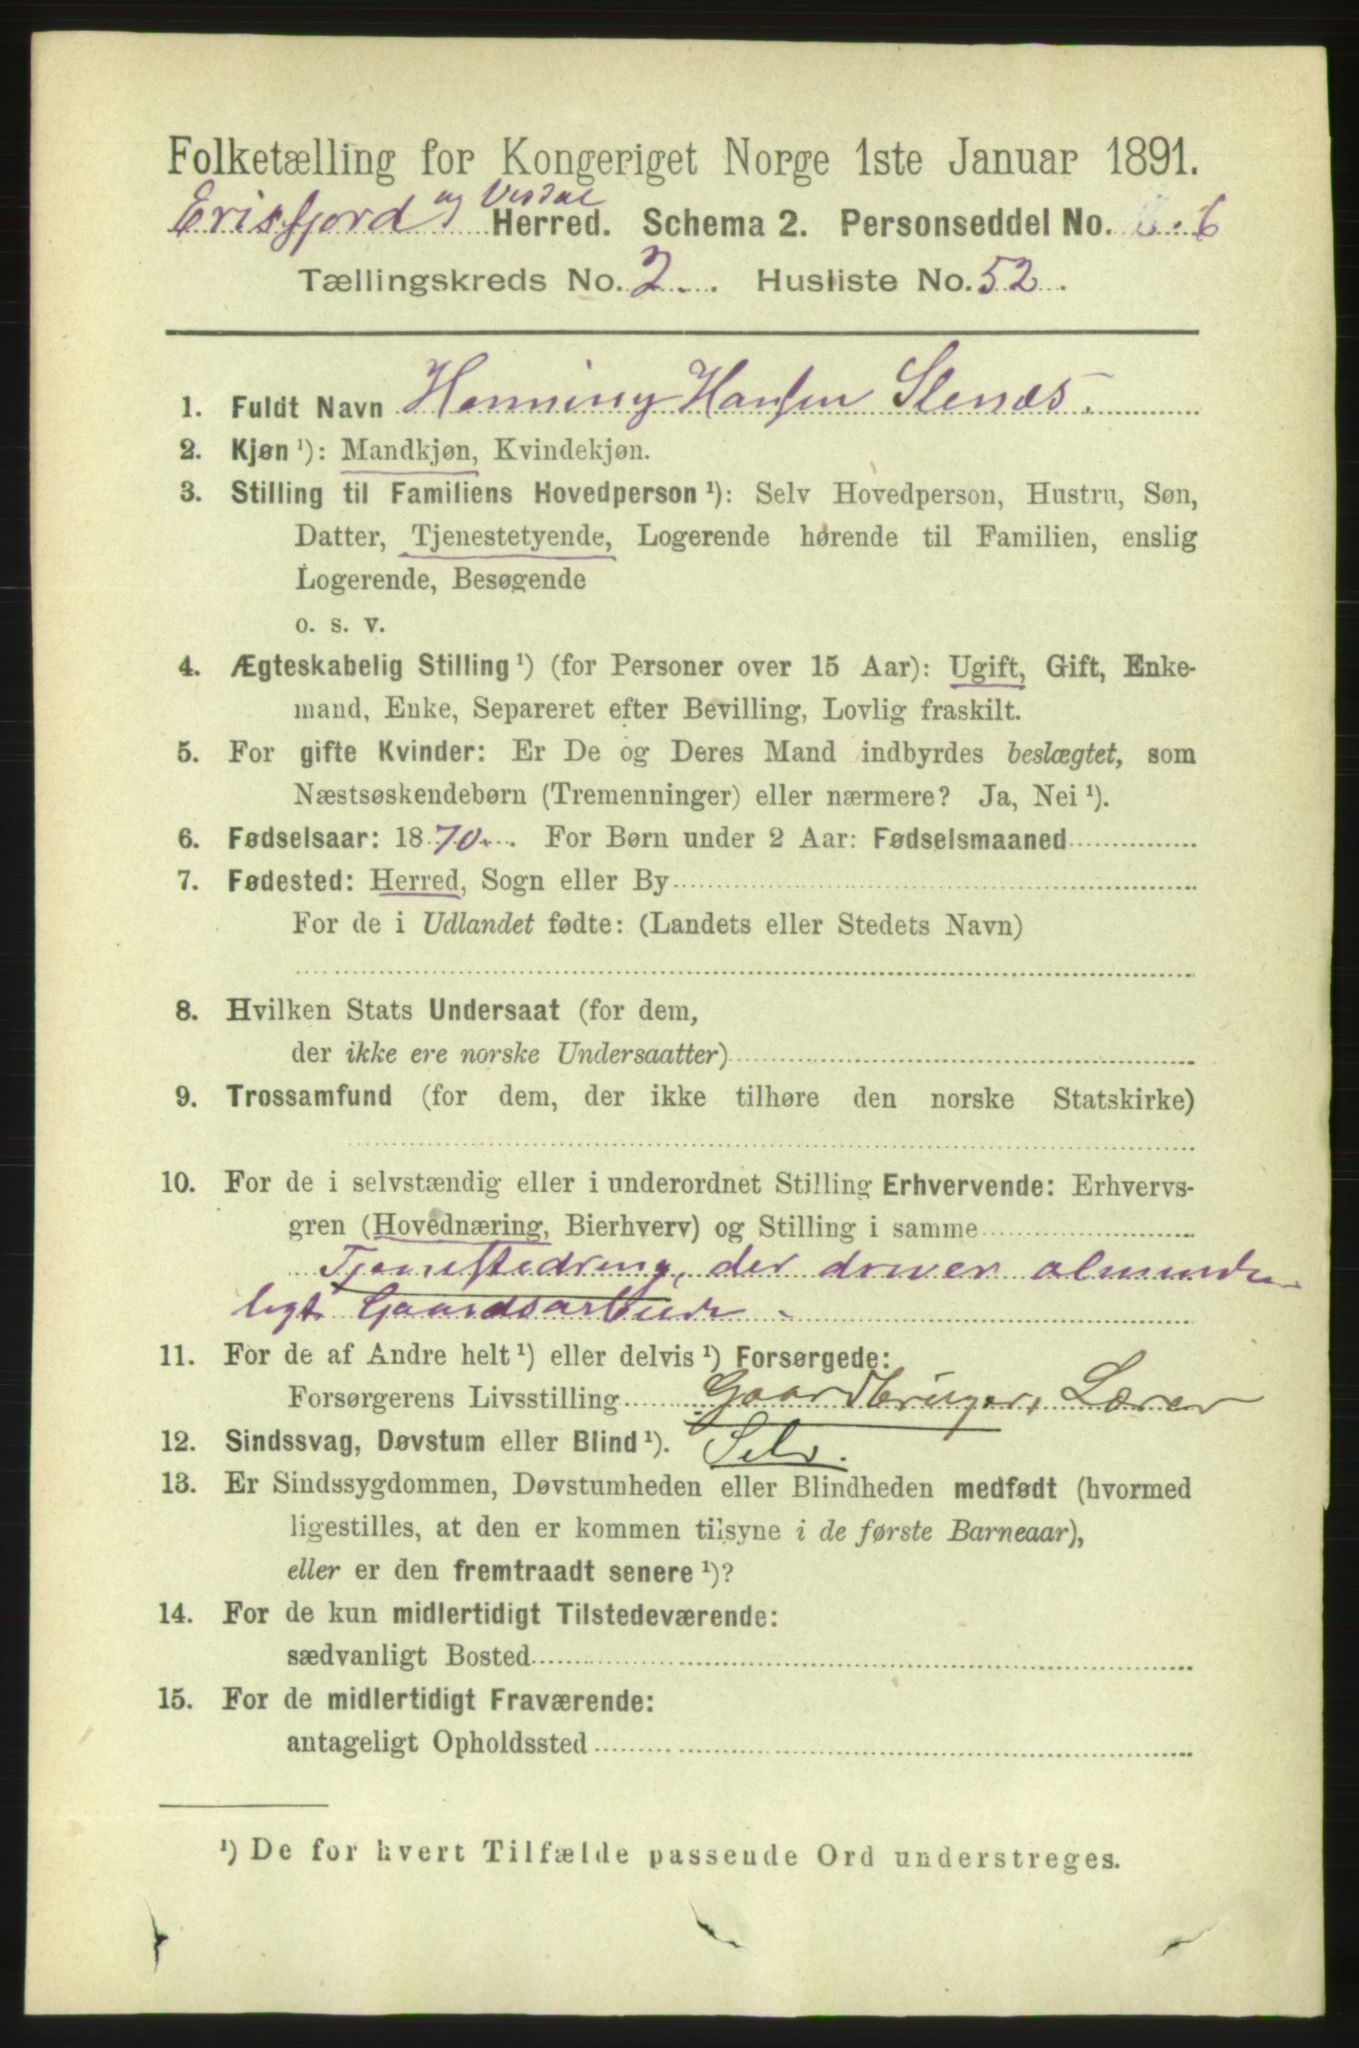 Folketælling for Kongeriget Norge 1ste Januar 1891.
Erisfjord og Visdal Herred. Schema 2. Personseddel No. 6
Tællingskreds No. 2. Husliste No. 52.
1. Fuldt Navn Henning Hansen Slenæs.
2. Kjøn ¹): Mandkjøn, Kvindekjøn.
3. Stilling til Familiens Hovedperson ¹): Selv Hovedperson, Hustru, Søn,
Datter, Tjenestetyende, Logerende hørende til Familien, enslig
Logerende, Besøgende
o. s. v.
4. Ægteskabelig Stilling ¹) (for Personer over 15 Aar): Ugift, Gift, Enke-
mand, Enke, Separeret efter Bevilling, Lovlig fraskilt.
5. For gifte Kvinder: Er De og Deres Mand indbyrdes beslægtet, som
Næstsøskendebørn (Tremenninger) eller nærmere? Ja, Nei ¹).
6. Fødselsaar: 1870. For Børn under 2 Aar: Fødselsmaaned
7. Fødested: Herred, Sogn eller By
For de i Udlandet fødte: (Landets eller Stedets Navn)
8. Hvilken Stats Undersaat (for dem,
der ikke ere norske Undersaatter)
9. Trossamfund (for dem, der ikke tilhøre den norske Statskirke)
10. For de i selvstændig eller i underordnet Stilling Erhvervende: Erhvervs-
gren (Hovednæring, Bierhverv) og Stilling i samme
Tjenestedreng, der driver alminde-
ligt Gaardsarbeide.
11. For de af Andre helt ¹) eller delvis ¹) Forsørgede:
Forsørgerens Livsstilling Gaardbruger, Lærer
12. Sindssvag, Døvstum eller Blind ¹). Selv.
13. Er Sindssygdommen, Døvstumheden eller Blindheden medfødt (hvormed
ligestilles, at den er kommen tilsyne i de første Barneaar),
eller er den fremtraadt senere ¹)?
14. For de kun midlertidigt Tilstedeværende:
sædvanligt Bosted
15. For de midlertidigt Fraværende:
antageligt Opholdssted
¹) De for hvert Tilfælde passende Ord understreges.